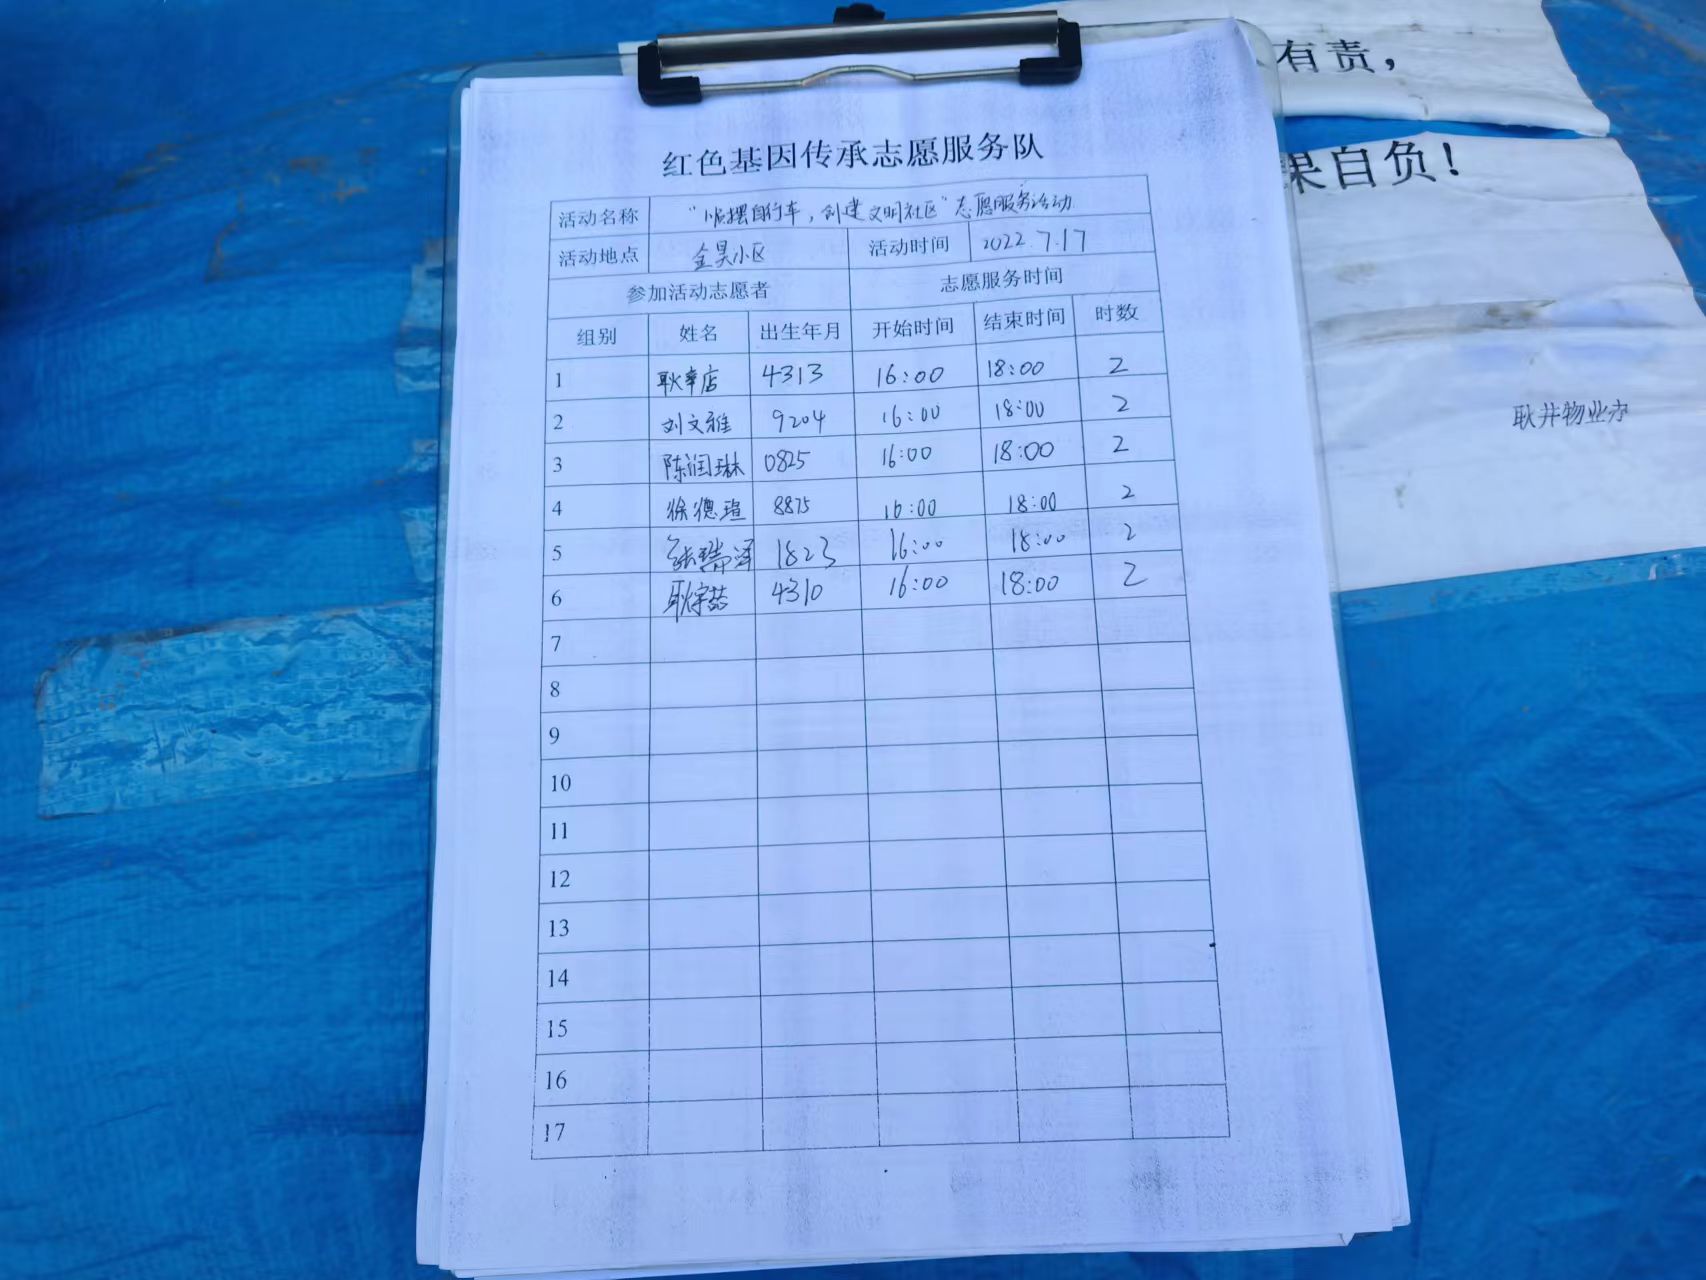 有责，
果自负！
耿井物业办
红色基因传承志愿服务队
活动名称 “顺摆自行车，创建文明社区”志愿服务活动
活动地点 金昊小区 活动时间 2022.7.17
参加活动志愿者 志愿服务时间
组别 姓名 出生年月 开始时间 结束时间 时数
1 耿幸店 4313 16:00 18:00 2
2 刘文雅 9204 16:00 18:00 2
3 陈润琳 0825 16:00 18:00 2
4 徐德瑄 8875 16:00 18:00 2
5 张瑞泽 1823 16:00 18:00 2
6 耿宇喆 4310 16:00 18:00 2
7
8
9
10
11
12
13
14
15
16
17